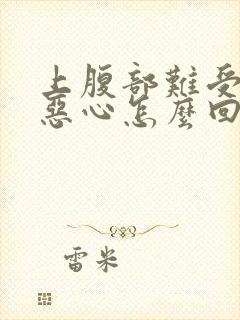 上腹部難受
惡心怎麼回
雷米